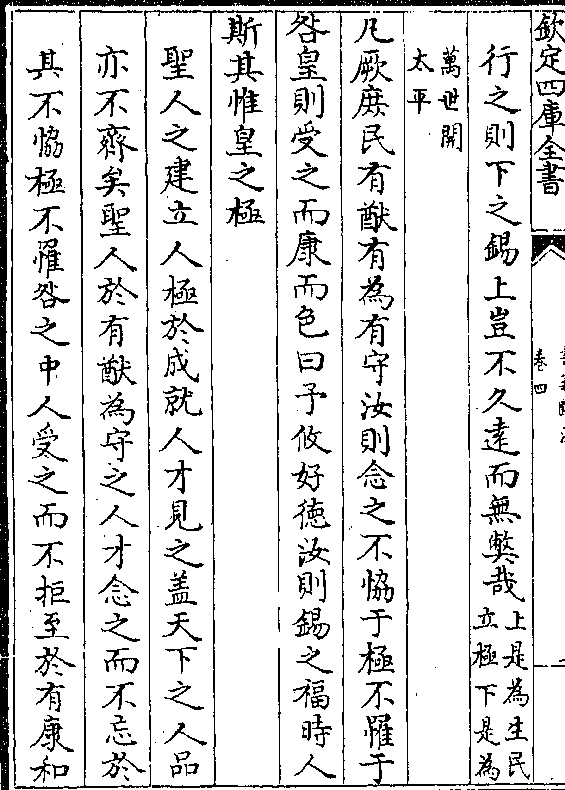 欽定四庫全書
卷四
行之則下之錫上豈不久逺而無弊哉上是為生民立極下是為
萬世開太平
凡厥庶民有猷有為有守汝則念之不恊于極不罹于
咎皇則受之而康而色曰予攸好徳汝則錫之福時人
斯其惟皇之極
聖人之建立人極於成就人才見之盖天下之人品
亦不齊矣聖人於有猷為守之人才念之而不忘於
其不恊極不罹咎之中人受之而不拒至於有康和